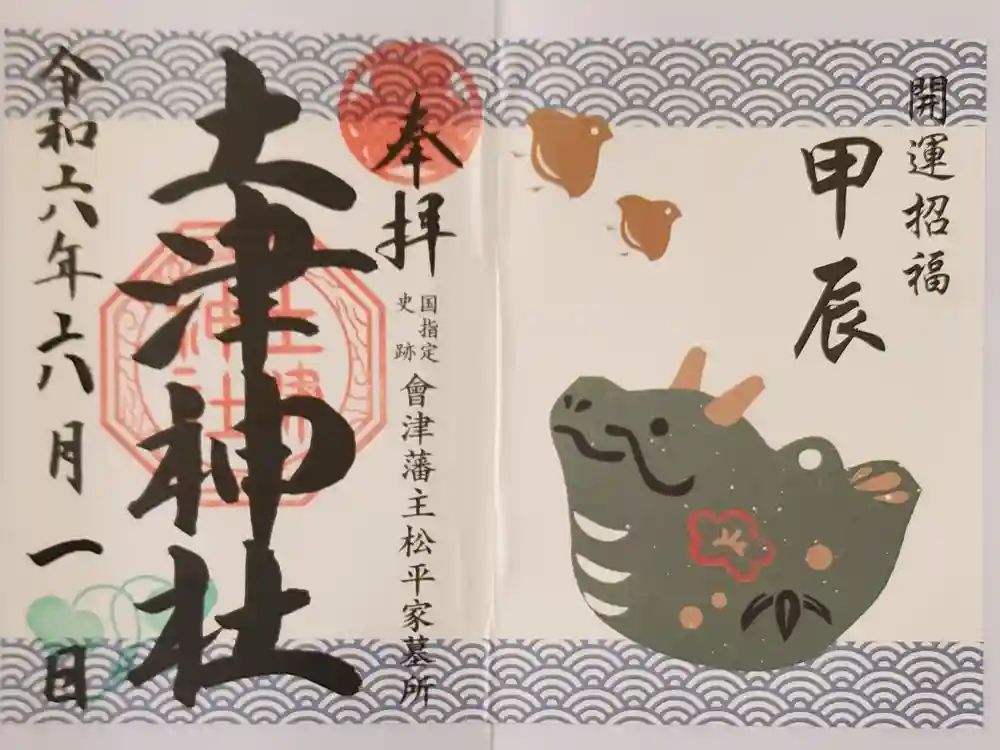 開運招福
甲辰
奉拝
国指定
史跡
會津藩主松平家墓所
土津神社
土津
神社
令和六年六月一日